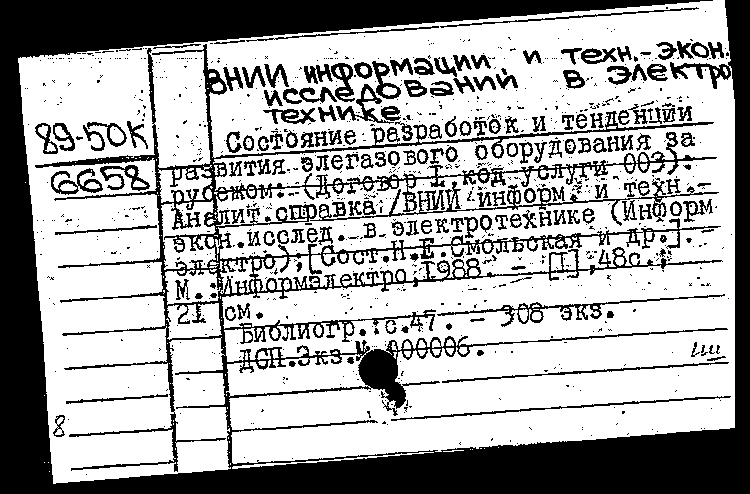 ВНИИ информации и техн.-экон.
исследований в электро
технике.
89-50К
6658
Состояние разработок и тенденции
развития элегазового оборудования за
рубежом: (Договор I, код услуги 003):
Аналит.справка /ВНИИ информ. и техн.-
экон.исслед. в электротехнике (Информ
электро);[Сост.Н.Е.Смольская и др.].-
М.:Информэлектро,1988. - [I],48с.;
21 см.
Библиогр.:с.47. - 308 экз.
ДСП.Экз.№ 000006.
8